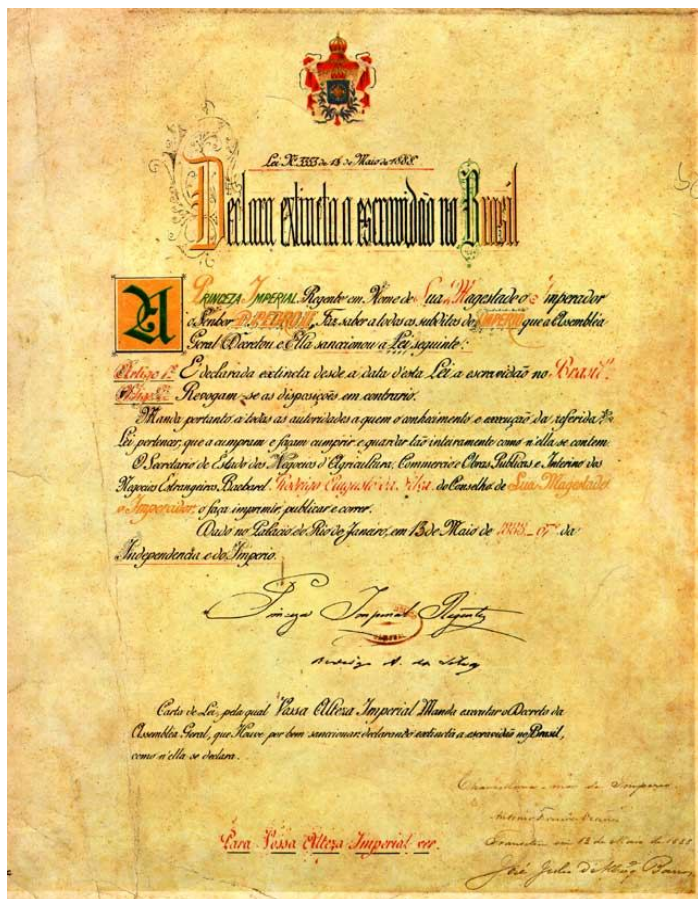 Lei N.º 3353 de 13 de Maio de 1888.
Declara extincta a escravidão no Brasil
A PRINCEZA IMPERIAL, Regente em Nome de Sua Magestade o Imperador
o Senhor D. PEDRO II, Faz saber a todos os subditos do IMPERIO que a Assembléa
Geral Decretou e Ella sanccionou a Lei seguinte:
Artigo 1º É declarada extincta desde a data d'esta Lei a escravidão no Brasil.
Artigo 2º Revogam-se as disposições em contrario.
Manda portanto a todas as autoridades a quem o conhecimento e execução da referida
Lei pertencer, que a cumpram e façam cumprir e guardar tão inteiramente como n'ella se contem.
O Secretario de Estado dos Negocios d'Agricultura, Commercio e Obras Publicas e Interino dos
Negocios Estrangeiros, Bacharel Rodrigo Augusto da Silva, do Conselho de Sua Magestade
o Imperador, o faça imprimir, publicar e correr.
Dado no Palacio do Rio de Janeiro, em 13 de Maio de 1888 67º da
Independencia e do Imperio.
Princeza Imperial Regente
Rodrigo A. da Silva
Carta de Lei, pela qual Vossa Alteza Imperial Manda executar o Decreto da
Assembléa Geral, que Houve por bem sanccionar, declarando extincta a escravidão no Brasil,
como n'ella se declara.
Para Vossa Alteza Imperial ver.
Chancellaria-mór do Imperio.
Antonio Ferreira Vianna
Transitou em 13 de Maio de 1888
José Julio d'Albuq Barros